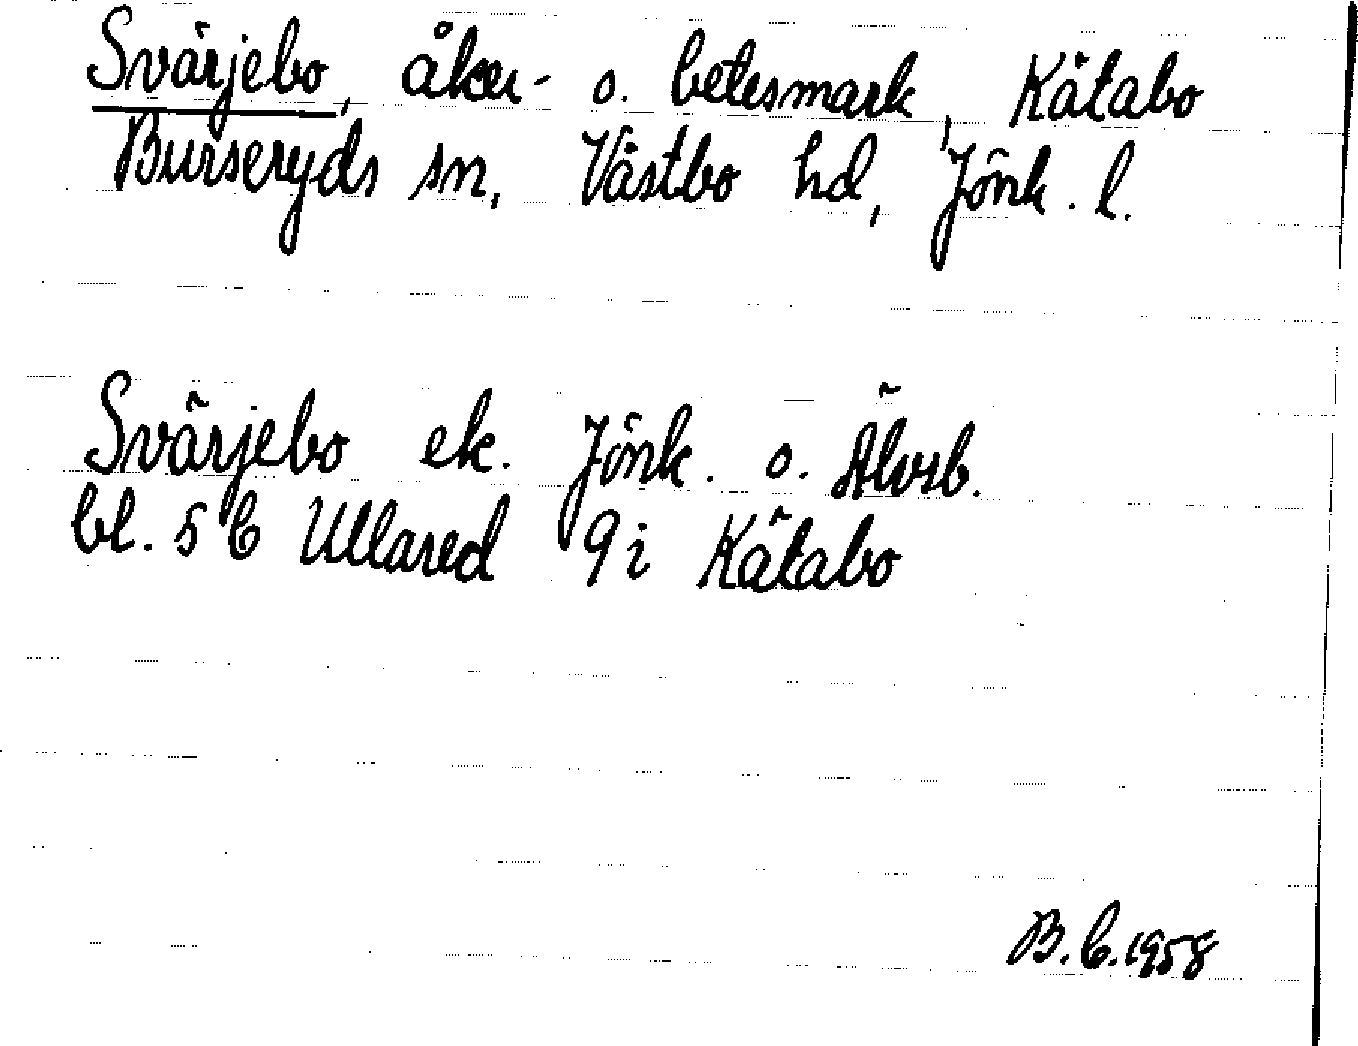 Svärjebo, åker- o. betesmark, Kätabo
Burseryds sn, Västbo hd, Jönk. l.
Svärjebo ek. Jönk. o. Älvsb.
bl. 5 C Ullared 9 i Kätabo
B.C. 1958